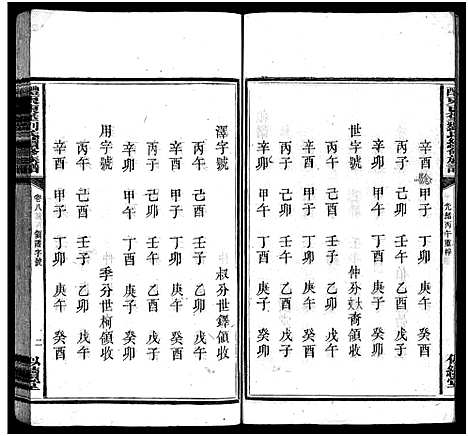 光緒丙午重梓
似續堂
辛酉 甲子 丁卯 庚午 癸酉
丙子 己卯 壬午 乙酉 戊子
辛卯 甲午 丁酉 庚子 癸卯
仲分世大裔領收
丙午 己酉 壬子 乙卯 戊午
辛酉 甲子 丁卯 庚午 癸酉
丙子 己卯 壬午 乙酉 戊子
辛卯 甲午 丁酉 庚子 癸卯
澤字號 叔分世鐸領收
丙午 己酉 壬子 乙卯 戊午
辛酉 甲子 丁卯 庚午 癸酉
丙子 己卯 壬午 乙酉 戊子
辛卯 甲午 丁酉 庚子 癸卯
用字號 季分世柯領收
丙午 己酉 壬子 乙卯 戊午
辛酉 甲子 丁卯 庚午 癸酉
卷八 領譜字號
二
似續堂